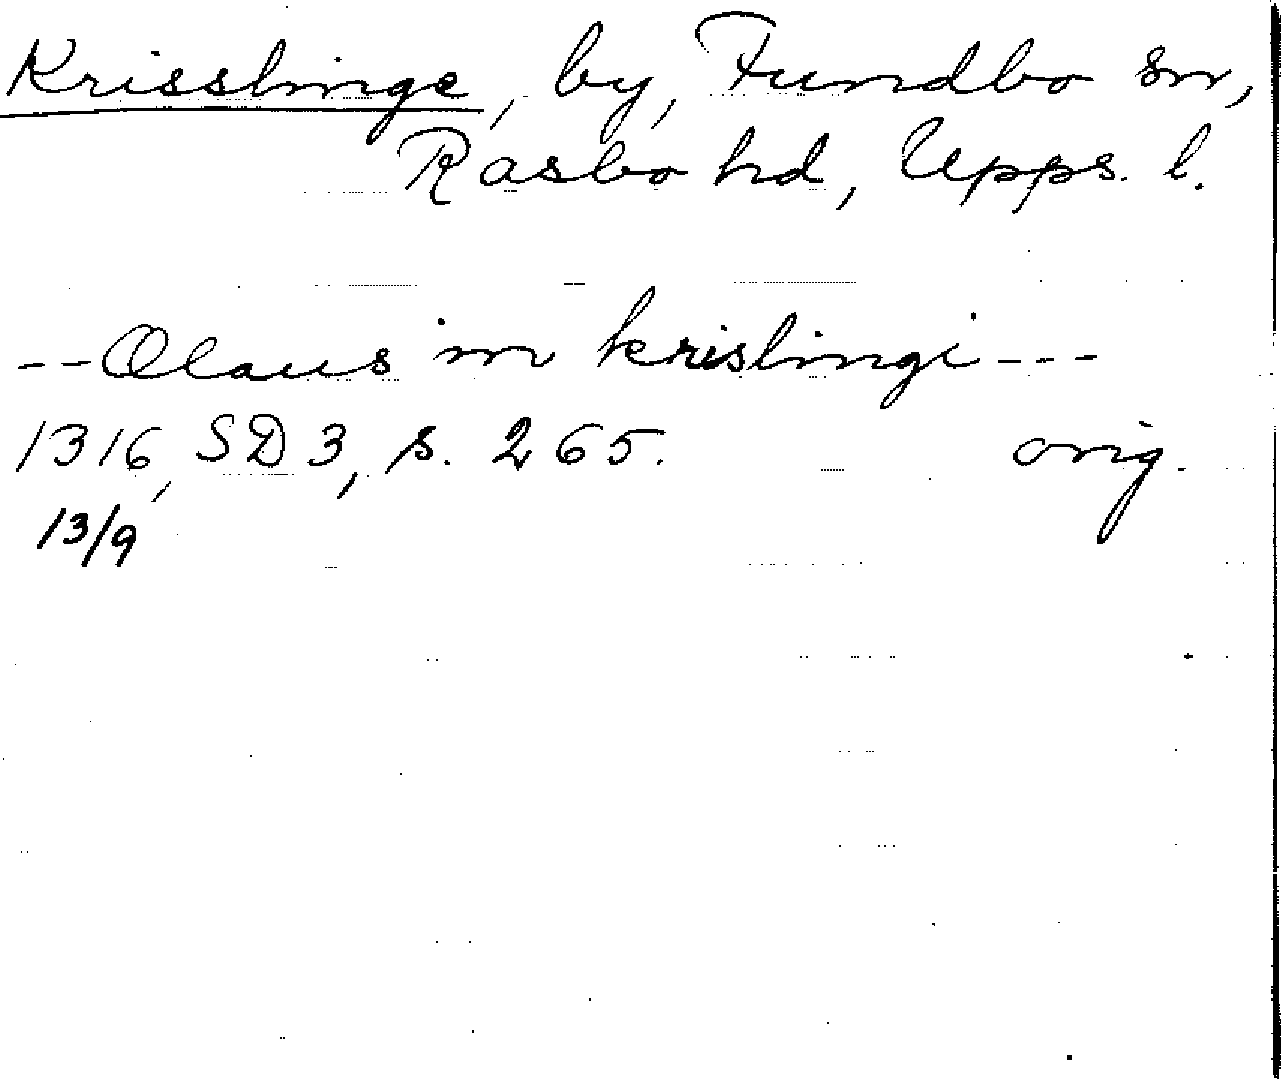 Krisslinge, by, Fundbo sn,
Rasbo hd, Upps. l.
-- Olaus in krislingi ---
1316, SD 3, s. 265. orig.
13/9